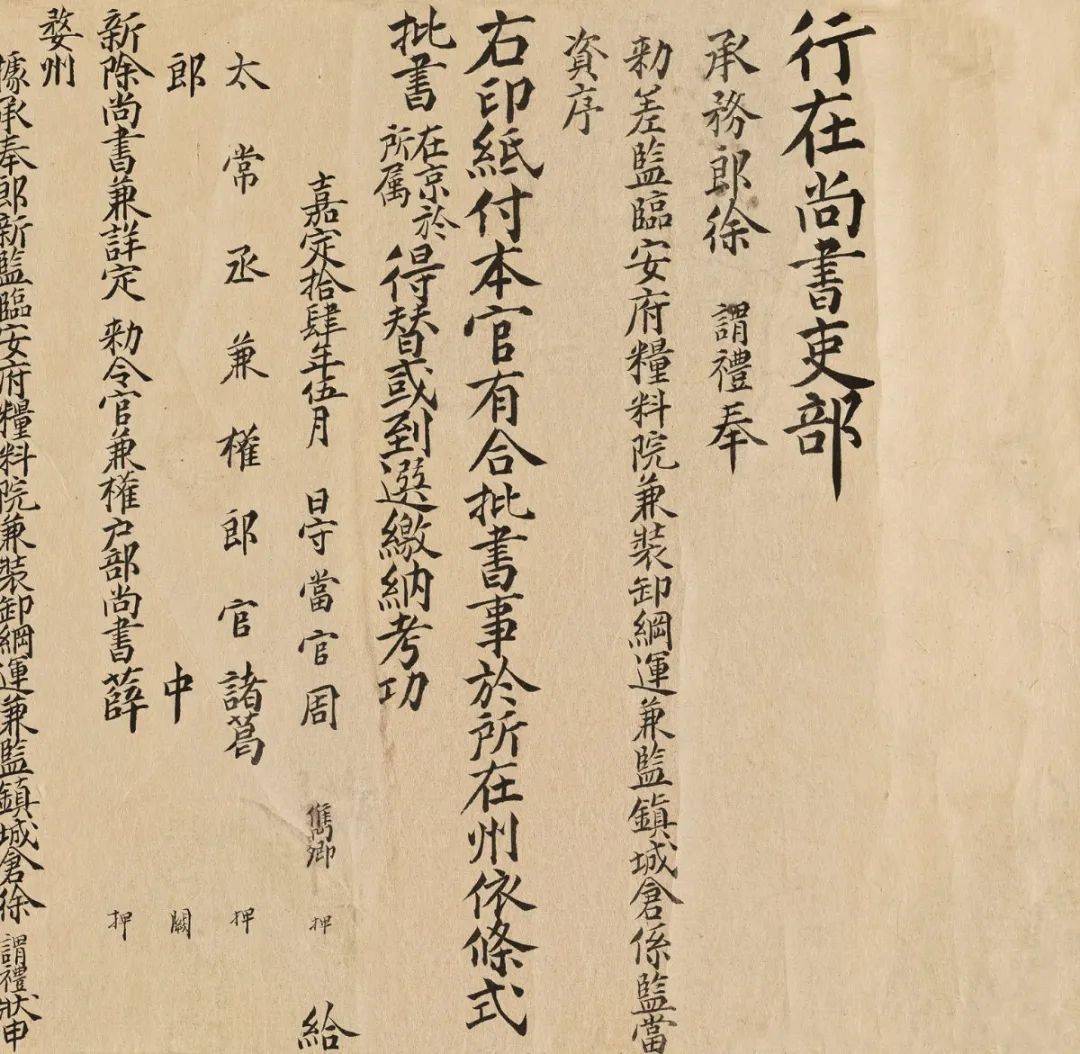 行在尚書吏部
承務郎徐 謂禮奉
勑差監臨安府糧料院兼裝卸綱運兼監鎮城倉係監當
資序
右印紙付本官有合批書事於所在州依條式
批書在京於所属得替或到選繳納考功
嘉定拾肆年伍月 日守當官周 雋卿 押 給
太常丞兼權郎官諸葛 押
郎 中 闕
新除尚書兼詳定 勑令官兼權户部尚書薛 押
婺州
據承奉郎新監臨安府糧料院兼裝卸綱運兼監鎮城倉徐 謂禮狀申